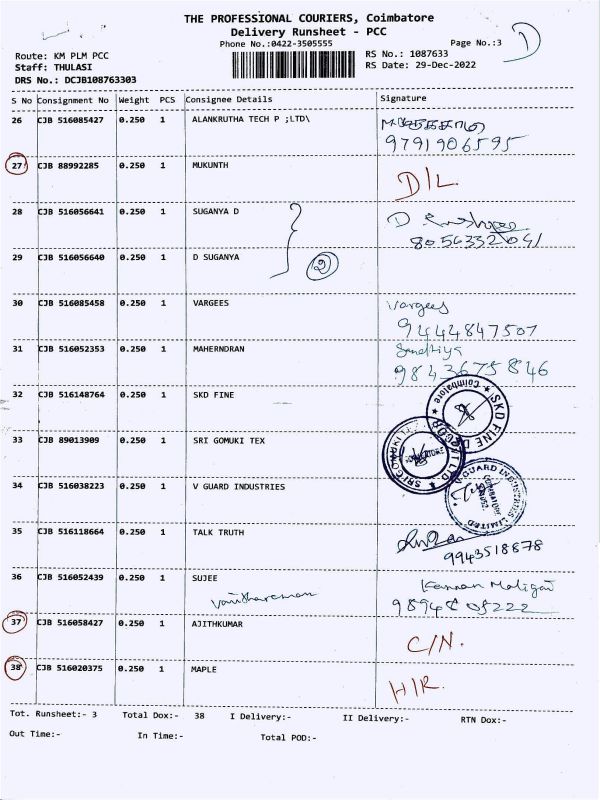 THE PROFESSIONAL COURIERS, Coimbatore
Delivery Runsheet - PCC
Phone No.:0422-3505555
Page No.:3
Route: KM PLM PCC
Staff: THULASI
DRS No.: DCJB108763303
RS No.: 1087633
RS Date: 29-Dec-2022
S No Consignment No Weight PCS Consignee Details Signature
26 CJB 516085427 0.250 1 ALANKRUTHA TECH P ;LTD\
9791906595
27 CJB 88992285 0.250 1 MUKUNTH D/L.
28 CJB 516056641 0.250 1 SUGANYA D
8056332041
29 CJB 516056640 0.250 1 D SUGANYA
2
30 CJB 516085458 0.250 1 VARGEES Vargees
9444847507
31 CJB 516052353 0.250 1 MAHERNDRAN
9843675846
32 CJB 516148764 0.250 1 SKD FINE
33 CJB 89013909 0.250 1 SRI GOMUKI TEX
34 CJB 516038223 0.250 1 V GUARD INDUSTRIES
35 CJB 516118664 0.250 1 TALK TRUTH
9943518878
36 CJB 516052439 0.250 1 SUJEE
37 CJB 516058427 0.250 1 AJITHKUMAR C/N.
38 CJB 516020375 0.250 1 MAPLE H/R.
Tot. Runsheet:- 3 Total Dox:- 38 I Delivery:- II Delivery:- RTN Dox:-
Out Time:- In Time:- Total POD:-